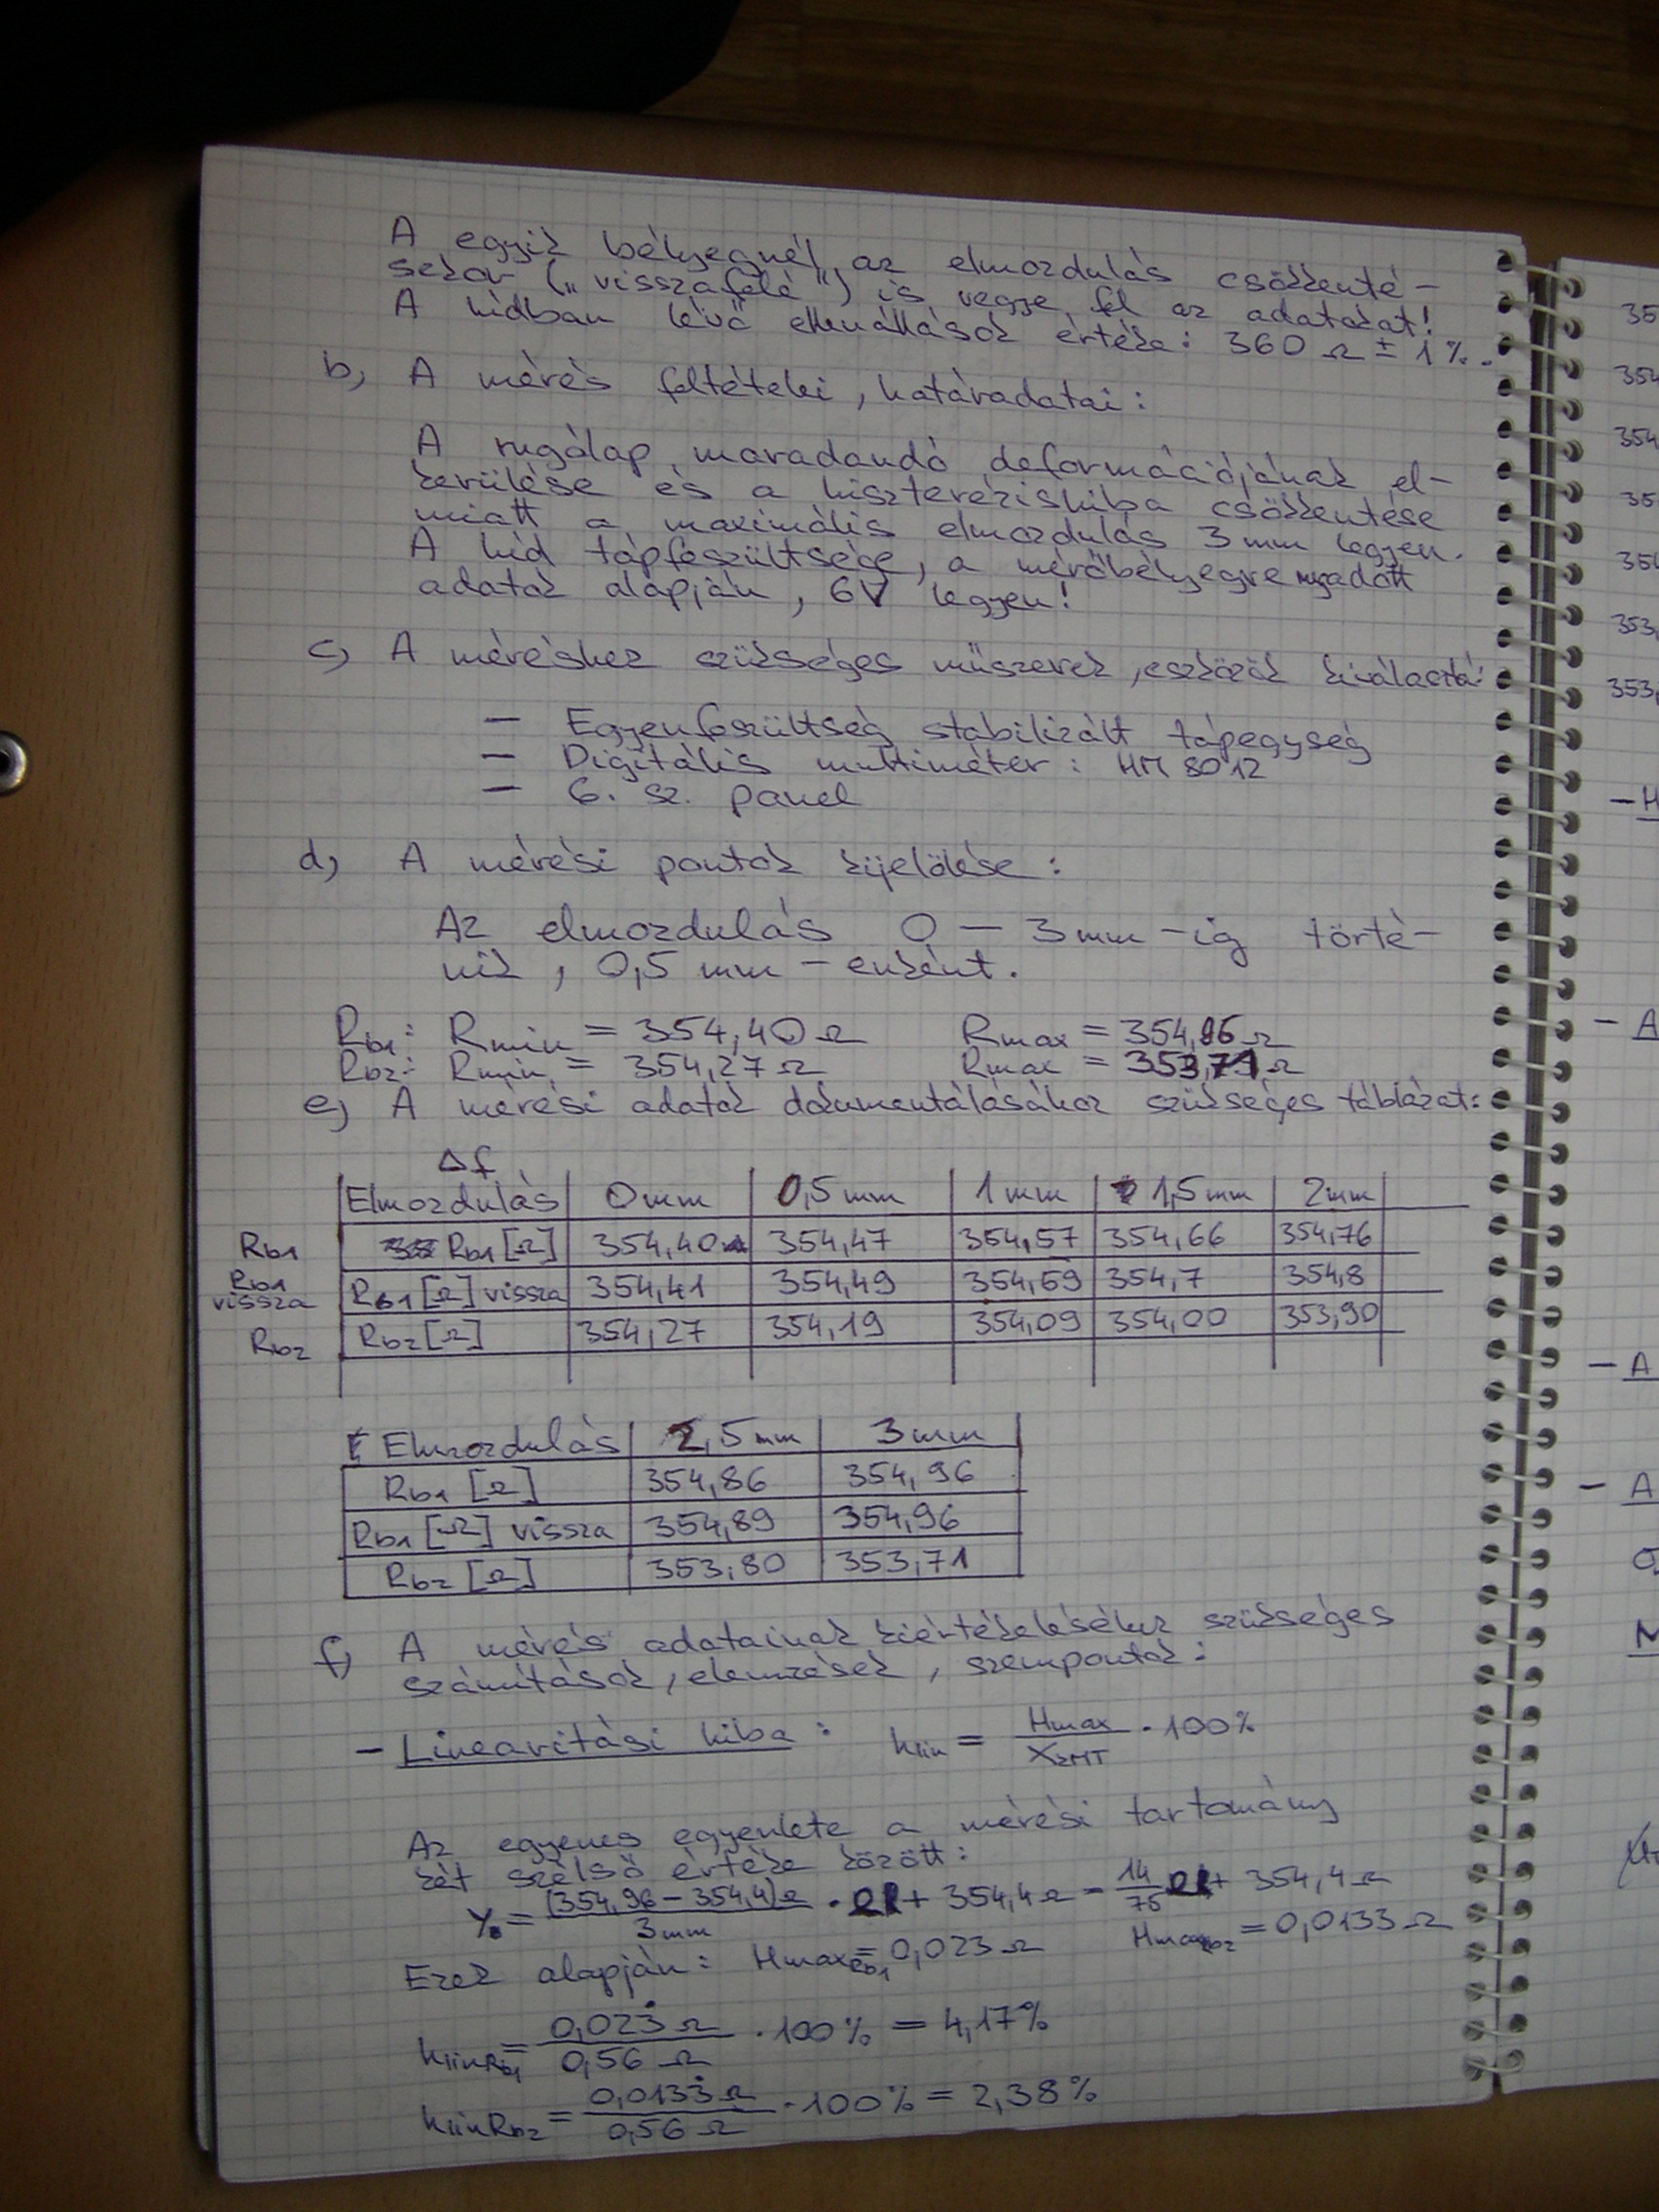 A egyik bélyegnél, az elmozdulás csökkenté-
sekor („visszafelé") is vegye fel az adatokat!
A hídban lévő ellenállások értéke: 360 Ω ± 1%.
b, A mérés feltételei, határadatai:
A rugólap maradandó deformációjának el-
kerülése és a hiszterézishiba csökkentése
miatt a maximális elmozdulás 3 mm legyen.
A híd tápfeszültsége, a mérőbélyegre megadott
adatok alapján, 6V legyen!
c, A méréshez szükséges műszerek, eszközök kiválasztá:
— Egyenfeszültség stabilizált tápegység
— Digitális multiméter: HM 8012
— 6. sz. panel
d, A mérési pontok kijelölése:
Az elmozdulás 0 — 3 mm-ig törté-
nik, 0,5 mm - enként.
Rb1: Rmin = 354,40 Ω Rmax = 354,96 Ω
Rb2: Rmin = 354,27 Ω Rmax = 353,71 Ω
e, A mérési adatok dokumentálásához szükséges táblázat:
Δf
Elmozdulás 0 mm 0,5 mm 1 mm 1,5 mm 2 mm
Rb1 Rb1 [Ω] 354,40 354,47 354,57 354,66 354,76
Rb1 vissza Rb1 [Ω] vissza 354,41 354,49 354,59 354,7 354,8
Rb2 Rb2 [Ω] 354,27 354,19 354,09 354,00 353,90
Elmozdulás 2,5 mm 3 mm
Rb1 [Ω] 354,86 354,96
Rb1 [Ω] vissza 354,89 354,96
Rb2 [Ω] 353,80 353,71
f, A mérés adatainak kiértékeléséhez szükséges
számítások, elemzések, szempontok:
- Linearitási hiba: hlin = Hmax / XkMT · 100%
Az egyenes egyenlete a mérési tartomány
két szélső értéke között:
y = (354,96 - 354,4)Ω / 3 mm · + 354,4 Ω = 14/75 + 354,4 Ω
Ezek alapján: HmaxRb1 = 0,023 Ω HmaxRb2 = 0,0133 Ω
hlinRb1 = 0,023̇ Ω / 0,56 Ω · 100% = 4,17%
hlinRb2 = 0,0133̇ Ω / 0,56 Ω · 100% = 2,38%